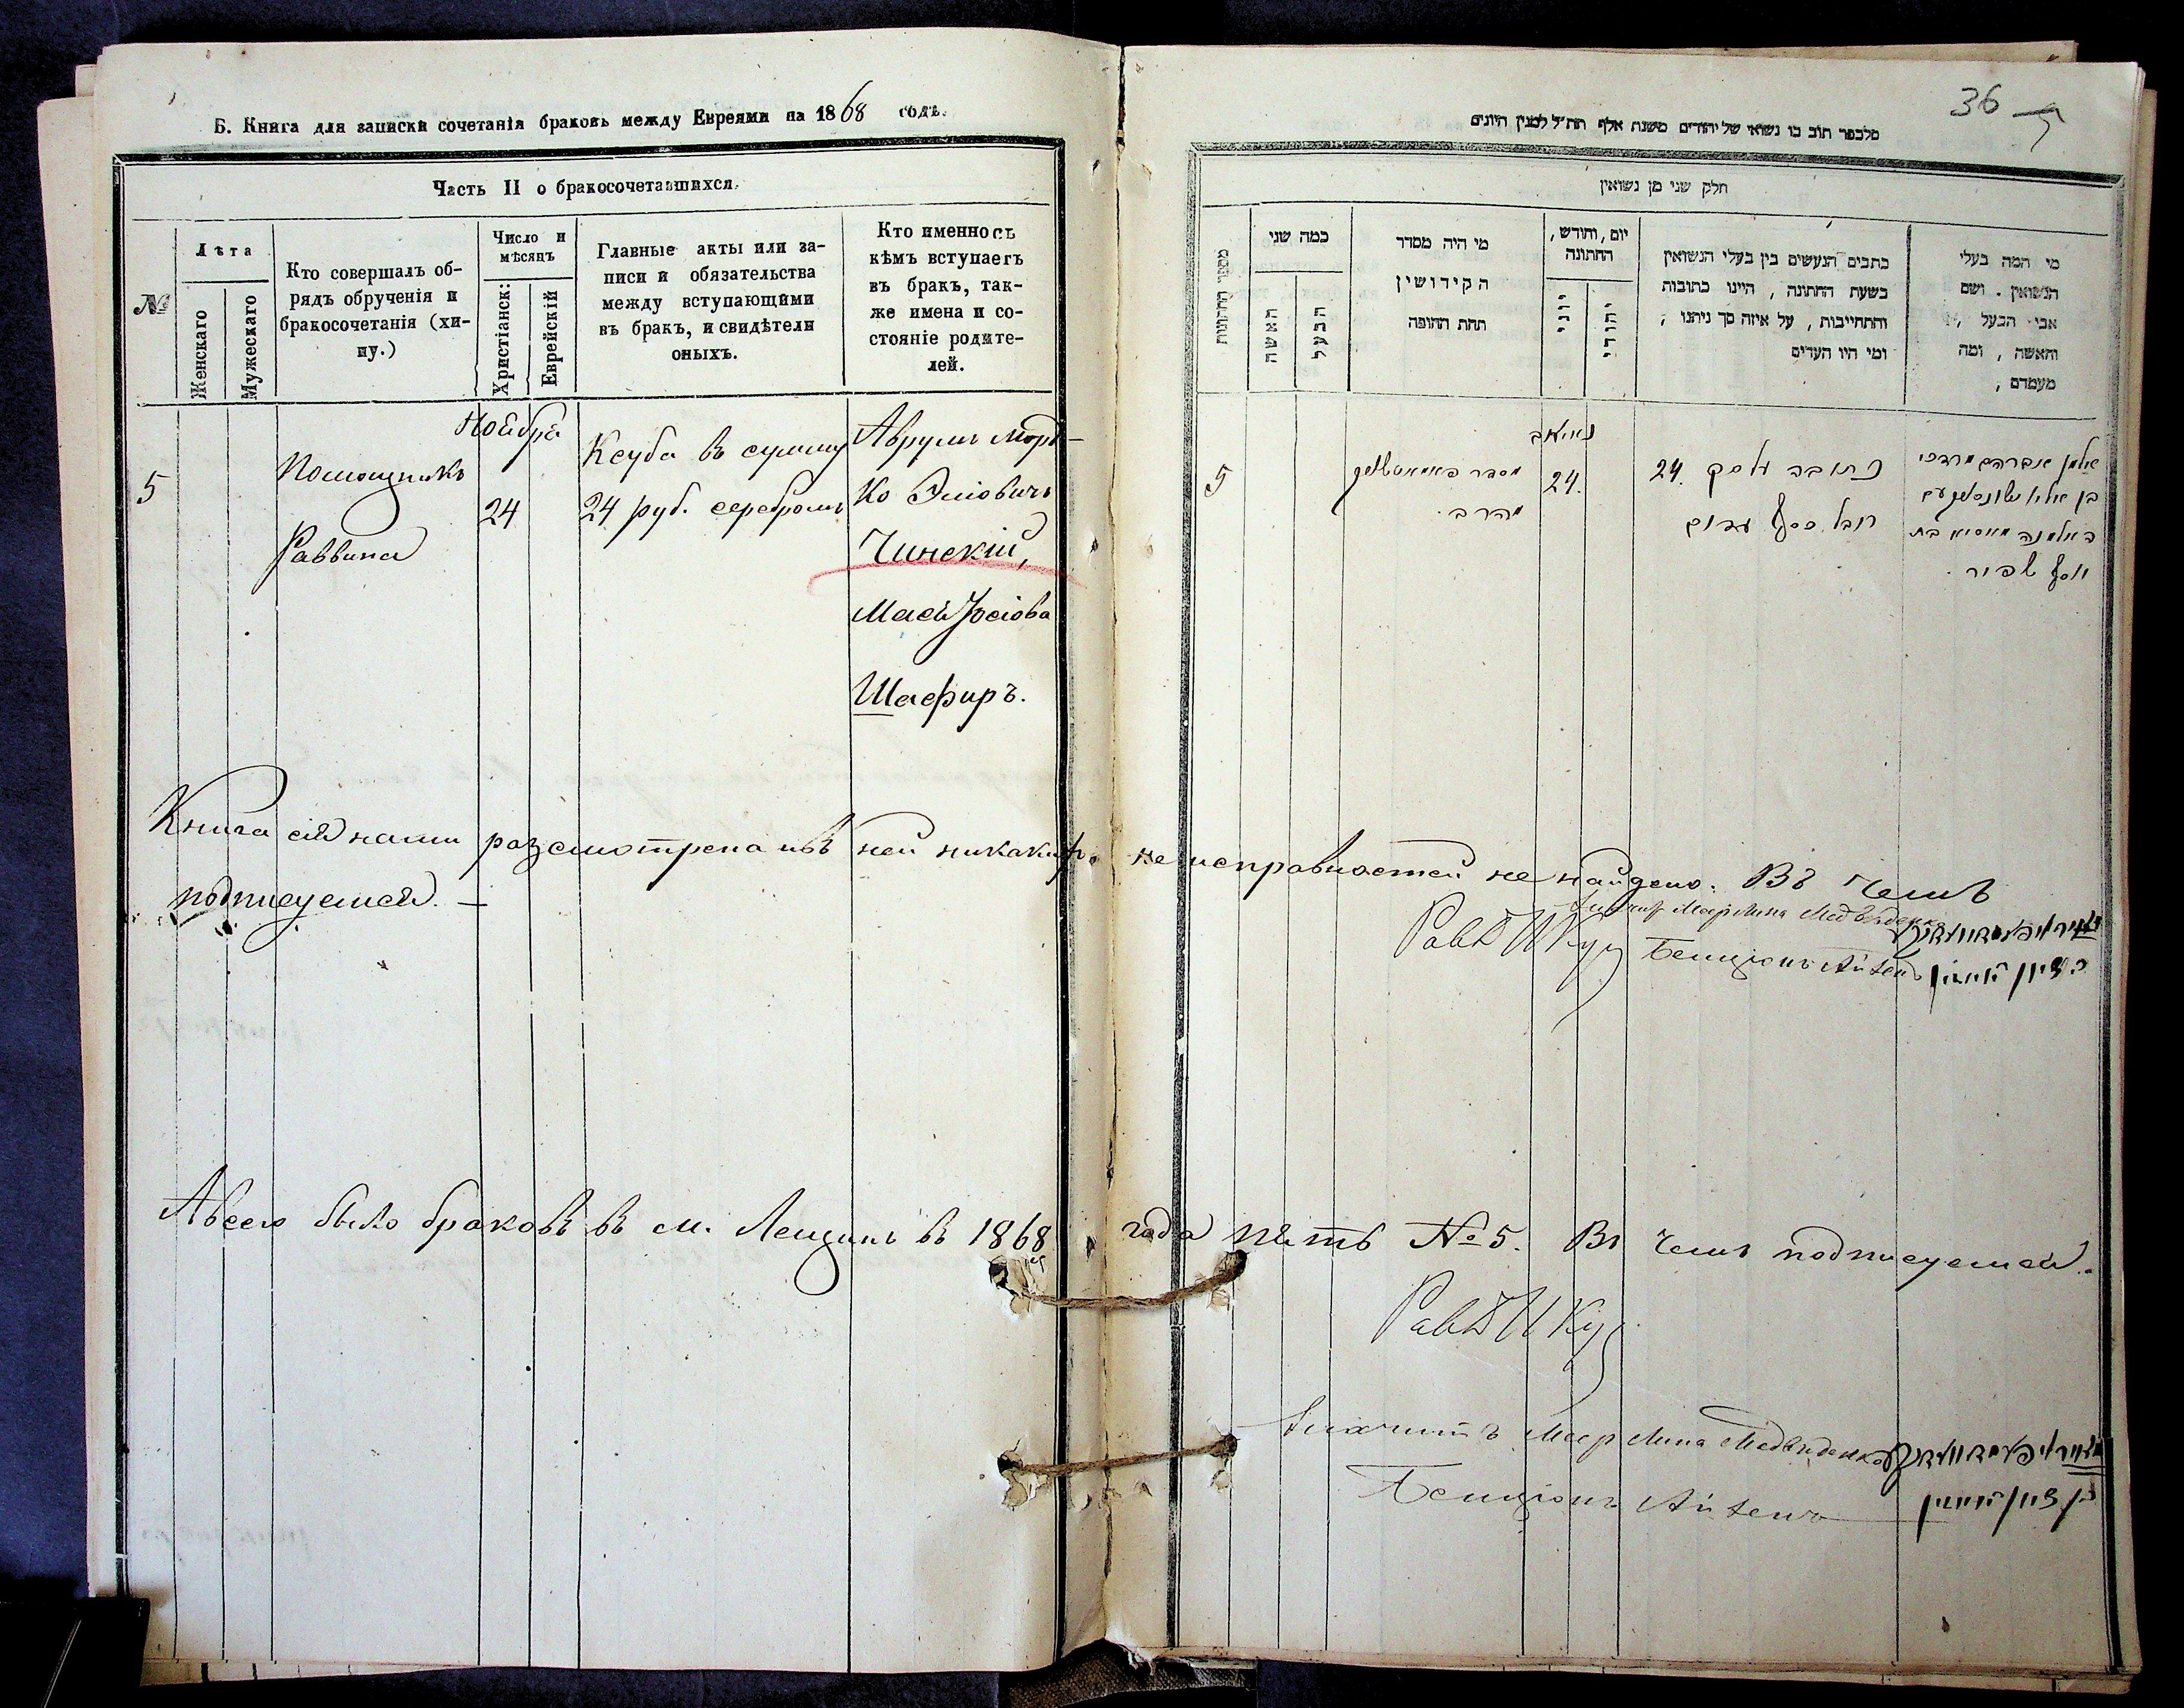 Б. Книга для записки сочетанія браковъ между Евреями на 1868 годъ.
Часть II о бракосочетавшихся.
№
Лѣта
Женскаго
Мужескаго
Кто совершалъ об-
рядъ обрученія и
бракосочетанія (хи-
пу.)
Число и
мѣсяцъ
Христіанск:
Еврейскій
Главные акты или за-
писи и обязательства
между вступающими
въ бракъ, и свидѣтели
оныхъ.
Кто именно съ
кѣмъ вступаетъ
въ бракъ, так-
же имена и со-
стояніе родите-
лей.
5
Помощникъ
Раввина
Ноября
24
Ксуба въ сумму
24 руб. серебромъ
Аврумъ Морт-
ко Эліовичъ
Чинскій,
Мася Іосіова
Шафиръ.
36
חלק שני מן נשואין
מספר החתונות
כמה שני
האשה
הבעל
מי היה מסדר
הקידושין
תחת החופה
יום, וחודש,
החתונה
יוני
יהודי
כתבים הנעשים בין בעלי הנשואין
בשעת החתונה, היינו כתובות
והתחייבות, על איזה סך ניתנו,
ומי היו העדים
מי המה בעלי
הנשואין. ושם
אבי הבעל,
והאשה, ומה
מעמדם,
5
24.
כתובה על סך 24.
רובל כסף
אלמן אברהם מרדכי
האלמנה מאסיא בת
יוסף שפיר
Книга сія нами разсмотрена и въ ней никакихъ неисправностей не найдено. Въ чемъ
подписуемся. —
Равв И Куц
Бенціонъ
Авсего было браковъ въ м. Лещинъ въ 1868 года пять № 5. Въ чемъ подписуемся.
Равв И Куц
Меер Липа Медведенко
Бенціонъ
בן ציון